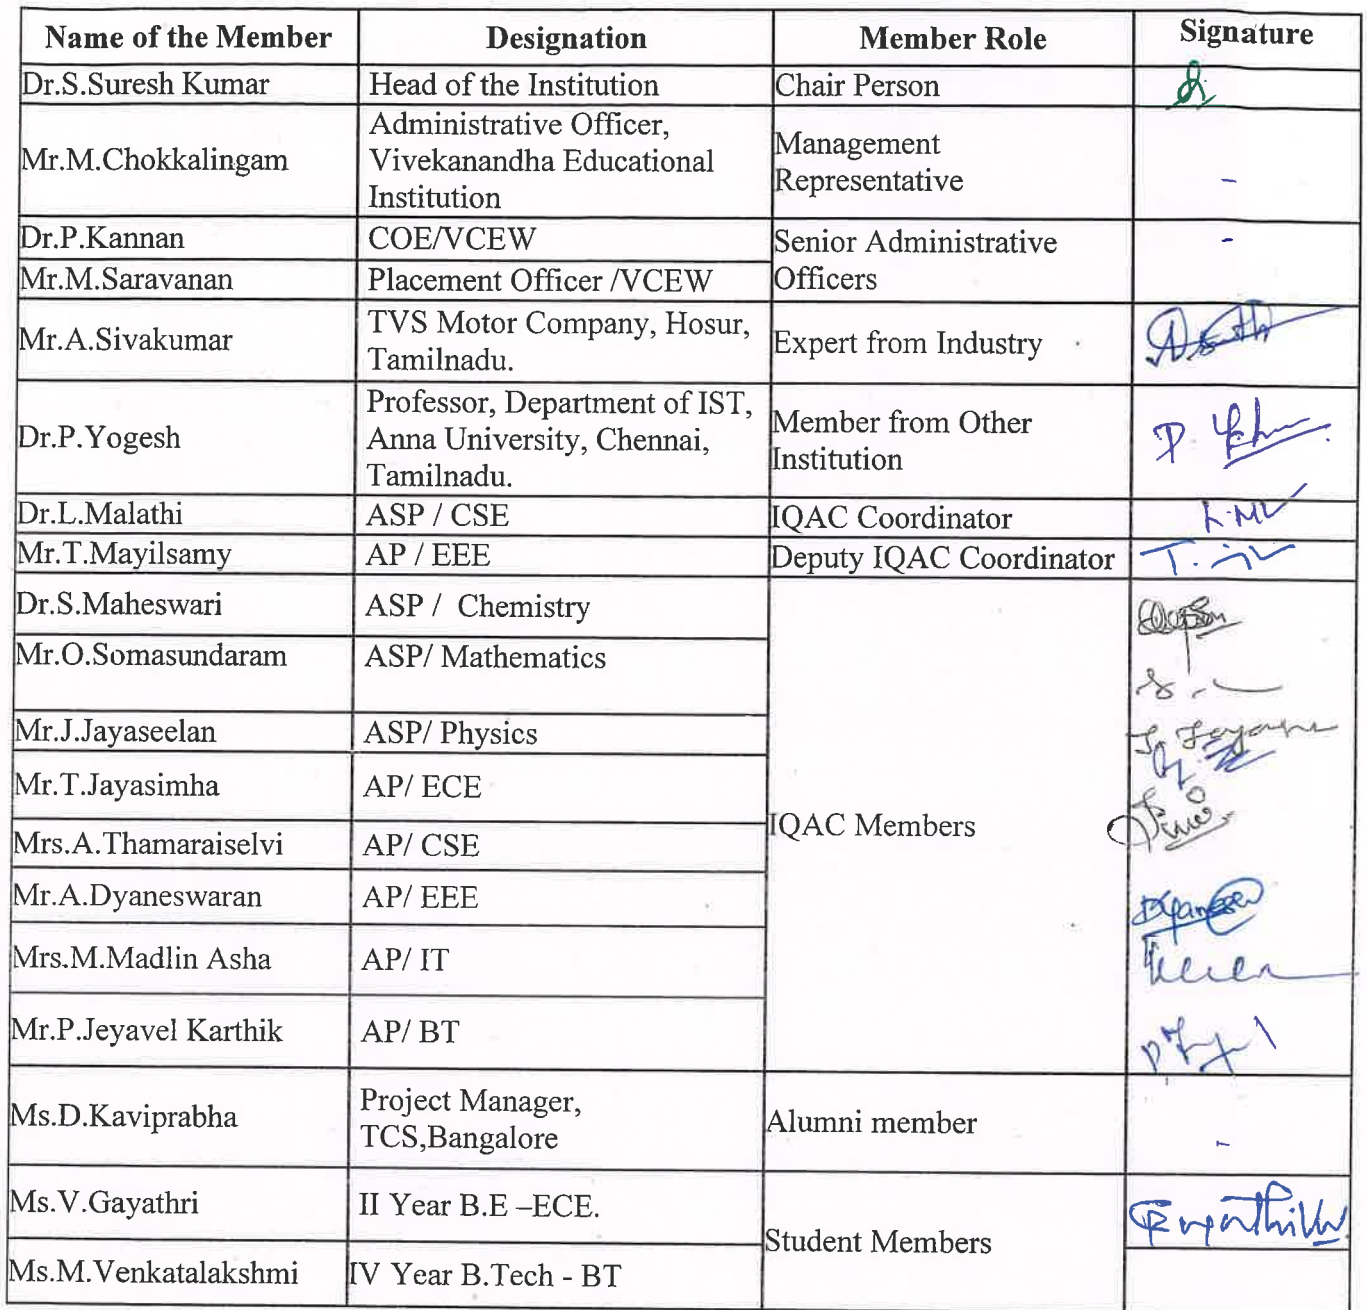 Name of the Member Designation Member Role Signature
Dr.S.Suresh Kumar Head of the Institution Chair Person
Mr.M.Chokkalingam
Administrative Officer,
Vivekanandha Educational
Institution
Management
Representative
-
Dr.P.Kannan COE/VCEW
Senior Administrative
Officers
-
Mr.M.Saravanan Placement Officer /VCEW
Mr.A.Sivakumar
TVS Motor Company, Hosur,
Tamilnadu.
Expert from Industry
Dr.P.Yogesh
Professor, Department of IST,
Anna University, Chennai,
Tamilnadu.
Member from Other
Institution
Dr.L.Malathi ASP / CSE IQAC Coordinator
Mr.T.Mayilsamy AP / EEE Deputy IQAC Coordinator
Dr.S.Maheswari ASP / Chemistry
Mr.O.Somasundaram ASP/ Mathematics
Mr.J.Jayaseelan ASP/ Physics
Mr.T.Jayasimha AP/ ECE
IQAC Members
Mrs.A.Thamaraiselvi AP/ CSE
Mr.A.Dyaneswaran AP/ EEE
Mrs.M.Madlin Asha AP/ IT
Mr.P.Jeyavel Karthik AP/ BT
Ms.D.Kaviprabha
Project Manager,
TCS,Bangalore
Alumni member
-
Ms.V.Gayathri II Year B.E –ECE.
Student Members
Ms.M.Venkatalakshmi IV Year B.Tech - BT